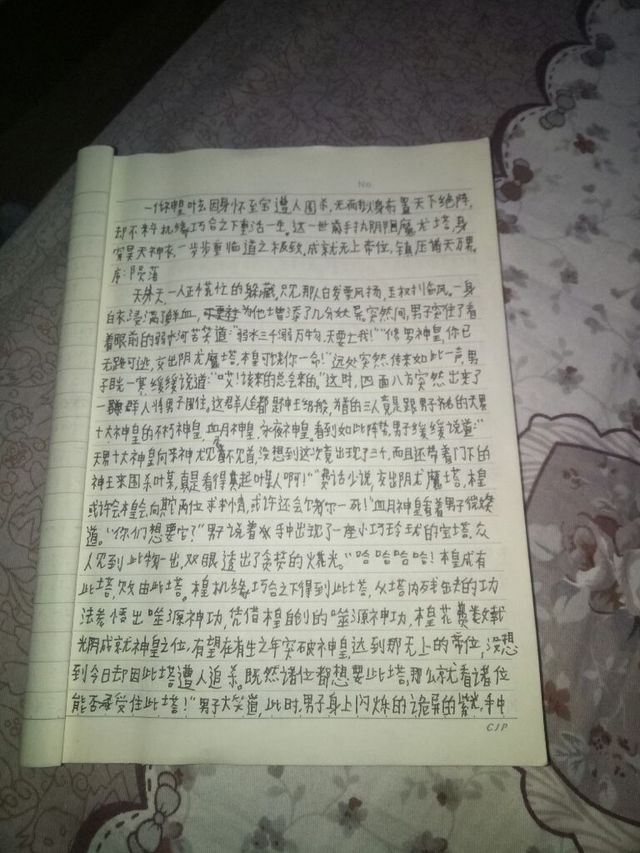 No.
一代神皇叶玄因身怀至宝遭人围杀,无奈以身布置天下绝阵,
却不料机缘巧合之下重活一生。这一世需手执阴阳魔龙塔,身
穿昊天神衣,一步步重临道之极致,成就无上帝位,镇压诸天万界。
序:陨落
天外天,一人正慌忙的躲藏,只见那人白发要风扬,玉衩抖备风。一身
白衣浸满鲜血,为他增添了几分妖异。突然间,男子突住了看
着眼前的弱水河苦笑道:"弱水三千溺万物,天要亡我!""修罗神皇,你已
无路可逃,交出阴龙魔塔,本皇可饶你一命!"远处突然传来如此一声,男
子目光一寒缓缓说道:"哎!该来的总会来的。"这时,四面八方突然出来了
一群人将男子围住。这群人全都是神王级般,为首的三人竟是跟男子齐名的天界
十大神皇的不朽神皇,血月神皇,永夜神皇,看到如此阵势,男子缓缓说道"
天界十大神皇向来神龙见首不见首,没想到这次竟出现了三个,而且还带着门下的
神王来围杀叶某,真是看得起叶某人啊!""费话少说,交出阴龙魔塔,本皇
或许会本皇会向欺两位求求情,或许还会尔等尔一死!"血月神皇看着男子缓缓
道。"你们想要它?"男子说着双手中出现了一座小巧玲珑的宝塔。众
人见到此物一出,双眼透出了贪婪的火光。"哈哈哈哈!本皇成有
此塔,败由此塔。本皇机缘巧合之下得到此塔,从塔内残缺的功
法参悟出噬源神功,凭借本皇自创的噬源神功,本皇花费数载
光阴成就神皇之位,有望在有生之年突破神皇达到那无上的帝位,没想
到今日却因此塔遭人追杀。既然诸位都想要此塔,那么就看诸位
能否承受住此塔!"男子大笑道,此时,男子身上闪烁的诡异的紫光,手中
CIP